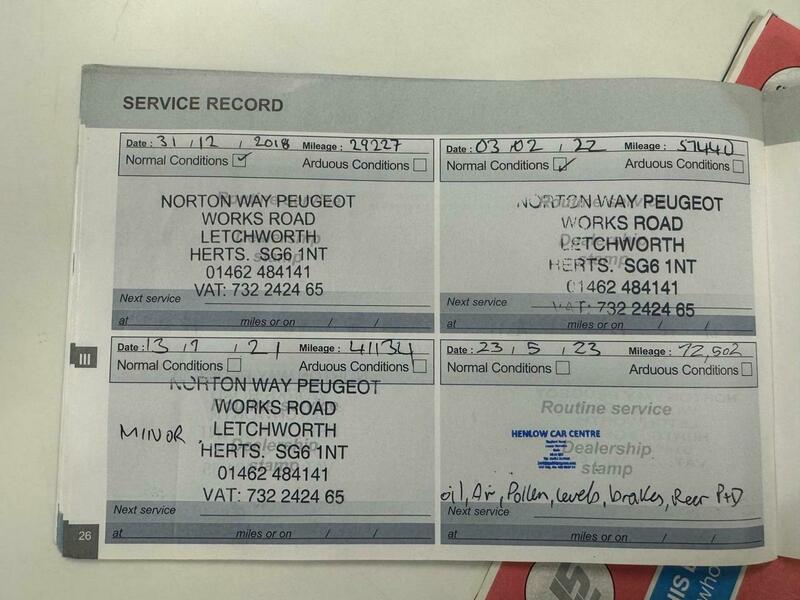 SERVICE RECORD
Date : 31 , 12 , 2018 Mileage : 29227
Normal Conditions ✓ Arduous Conditions
Routine service
NORTON WAY PEUGEOT
WORKS ROAD
LETCHWORTH
HERTS. SG6 1NT
01462 484141
VAT: 732 2424 65
Dealership
stamp
Next service
at miles or on / /
Date : 03 , 02 , 22 Mileage : 57440
Normal Conditions ✓ Arduous Conditions
Routine service
NORTON WAY PEUGEOT
WORKS ROAD
LETCHWORTH
HERTS. SG6 1NT
01462 484141
VAT: 732 2424 65
Dealership
stamp
Next service
at miles or on / /
Date : 13 , 7 , 21 Mileage : 41134
Normal Conditions Arduous Conditions
Routine service
NORTON WAY PEUGEOT
WORKS ROAD
MINOR . LETCHWORTH
HERTS. SG6 1NT
01462 484141
VAT: 732 2424 65
Dealership
stamp
Next service
at miles or on / /
Date : 23 , 5 , 23 Mileage : 72,502
Normal Conditions Arduous Conditions
Routine service
HENLOW CAR CENTRE
Dealership
stamp
oil, Air, Pollen, Levels, brakes, Rear P+D
Next service
at miles or on / /
III
26